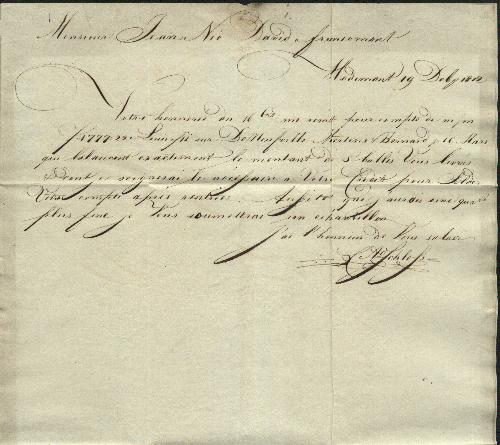 Monsieur Jean Nic David a francomont
Hodimont 19 Debr 1812
Votre honnorée du 16 me remt pour compte de
f 1777.22 sur De Neufville Mertens & Bernard p 16 Mars
qui balancent exactement le montant de 5 balles laine
dont je soignerai le a Votre Credit pour
Votre compte après rentrée. Aussitot que j'aurai une
plus fine je Vous soumettrai un echantillon
J'ai l'honneur de Vous saluer